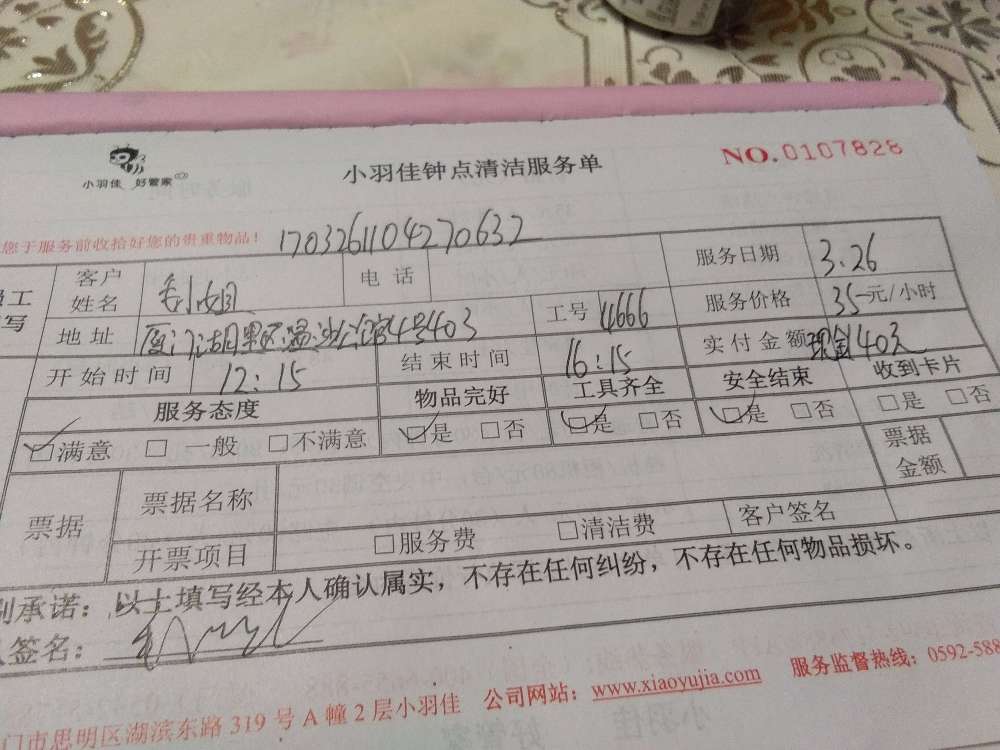 小羽佳 好管家
小羽佳钟点清洁服务单
NO.0107828
您于服务前收拾好您的贵重物品！
1703261104270632
员工
写
客户姓名 小姐
电话
服务日期 3.26
地址 厦门湖里区 4号403
工号 14666
服务价格 35元/小时
开始时间 12：15
结束时间 16：15
实付金额 现金140元
服务态度 物品完好 工具齐全 安全结束 收到卡片
☑满意 □一般 □不满意 ☑是 □否 ☑是 □否 ☑是 □否 □是 □否
票据 票据名称 票据金额
开票项目 □服务费 □清洁费 客户签名
承诺：以上填写经本人确认属实，不存在任何纠纷，不存在任何物品损坏。
签名：
门市思明区湖滨东路 319 号 A 幢 2 层小羽佳 公司网站：www.xiaoyujia.com 服务监督热线：0592-588